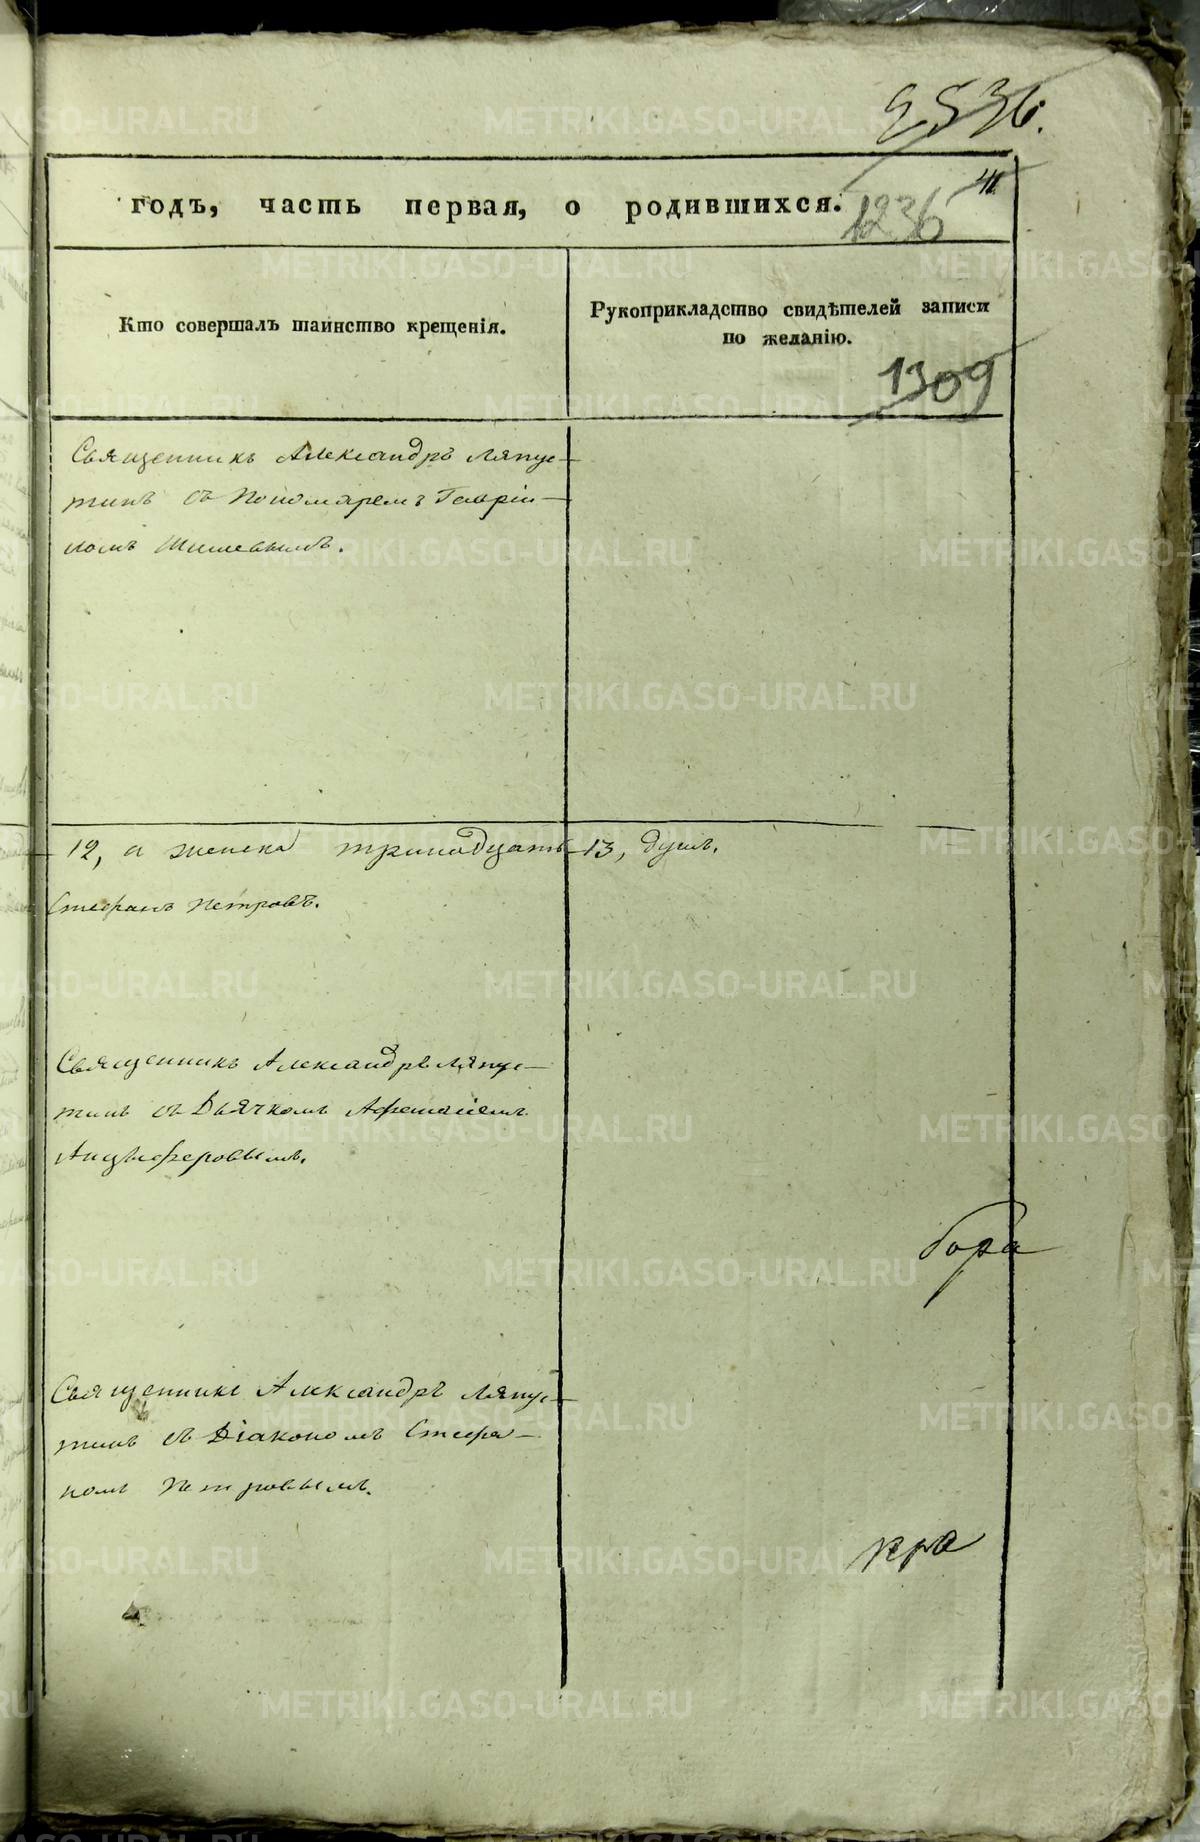 2536.
41.
годъ, часть первая, о родившихся.
1236
Кто совершалъ таинство крещенія.
Рукоприкладство свидѣтелей записи
по желанію.
1309
Священникъ Александръ Ляпус-
тинъ съ Пономаремъ Гавріи-
ломъ
12, а женска тринадцать 13, душъ.
Стефанъ Петровъ.
Священникъ Александръ Ляпус-
тинъ съ Дьячкомъ Афанасіемъ
Анцыферовымъ.
бора
Священникъ Александръ Ляпус-
тинъ съ Діакономъ Стефа-
номъ Петровымъ.
METRIKI.GASO-URAL.RU